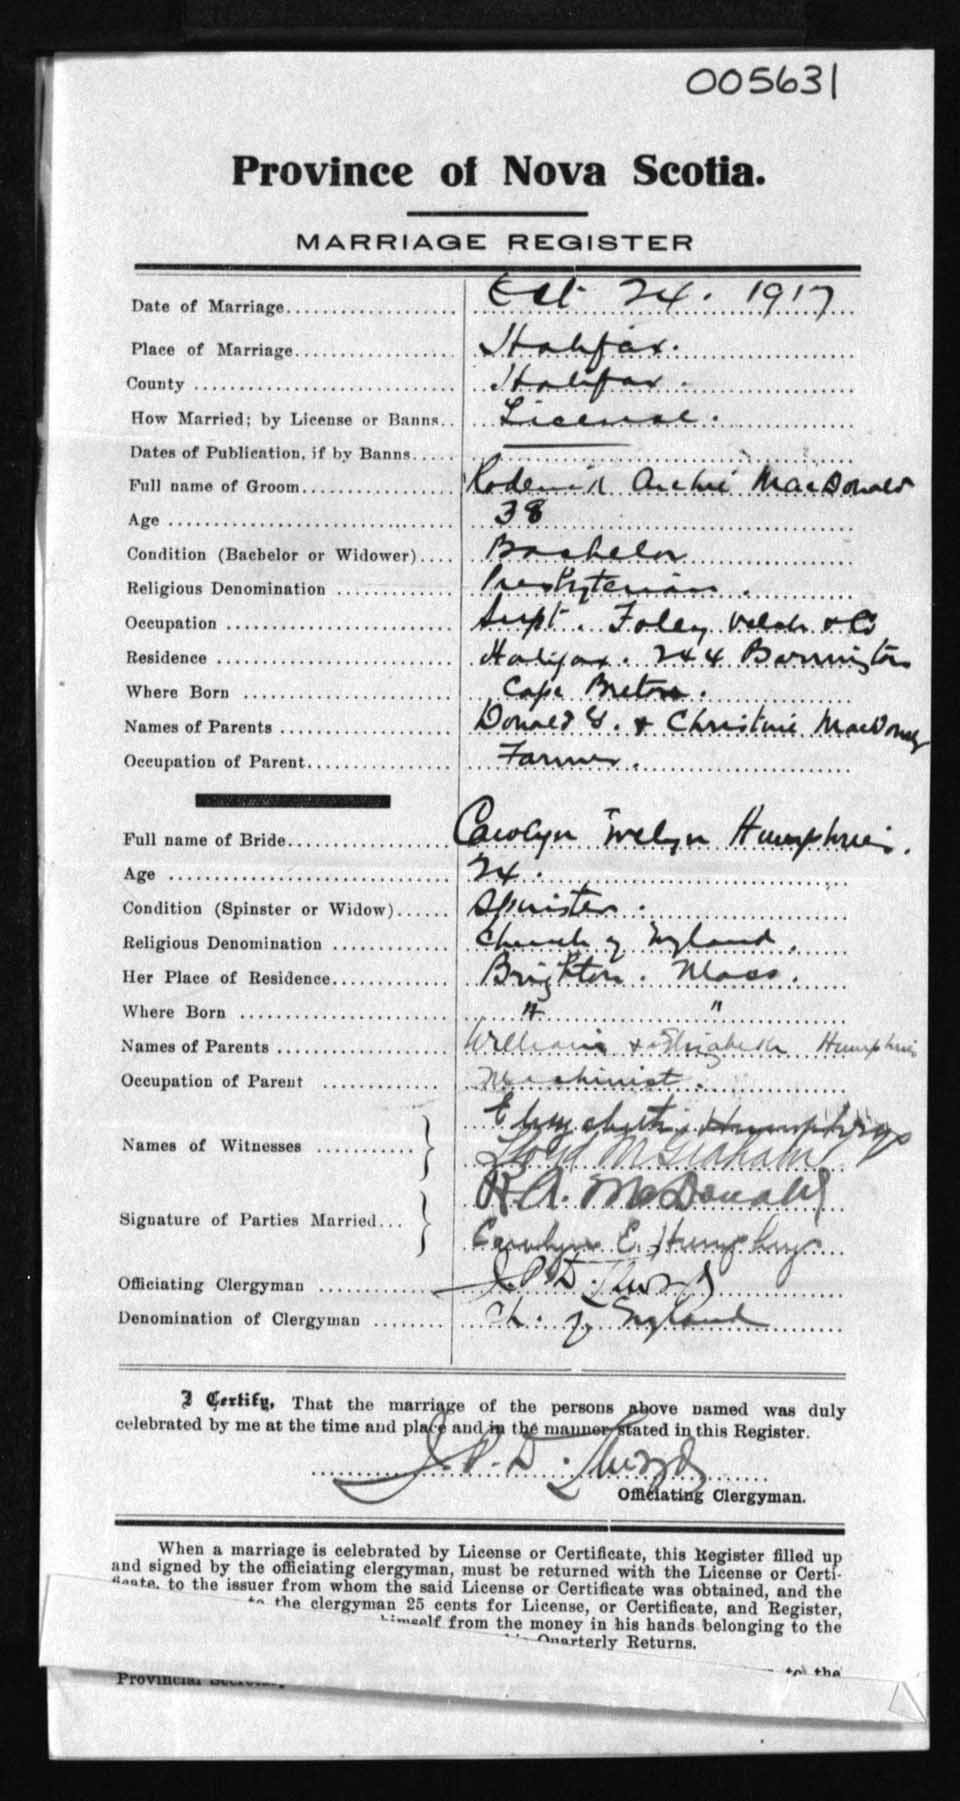 005631
Province of Nova Scotia.
MARRIAGE REGISTER
Date of Marriage Oct 24. 1917
Place of Marriage Halifax.
County Halifax.
How Married; by License or Banns License.
Dates of Publication, if by Banns
Full name of Groom Roderick Archie MacDonald
Age 38
Condition (Bachelor or Widower) Bachelor
Religious Denomination Presbyterian.
Occupation Supt. Foley Welch & Co
Residence Halifax. 244 Barrington
Where Born Cape Breton.
Names of Parents Donald G. & Christine MacDonald
Occupation of Parent Farmer.
Full name of Bride Carolyn Evelyn Humphries.
Age 24.
Condition (Spinster or Widow) Spinster.
Religious Denomination Church of England.
Her Place of Residence Brighton. Mass.
Where Born " "
Names of Parents William & Elizabeth Humphries
Occupation of Parent Machinist.
Elizabeth Humphreys
Names of Witnesses
Lloyd M Graham
R A. McDonald
Signature of Parties Married
Carolyn E. Humphreys
Officiating Clergyman
Denomination of Clergyman Ch. of England
I Certify, That the marriage of the persons above named was duly
celebrated by me at the time and place and in the manner stated in this Register.
Officiating Clergyman.
When a marriage is celebrated by License or Certificate, this Register filled up
and signed by the officiating clergyman, must be returned with the License or Certi-
ficate, to the issuer from whom the said License or Certificate was obtained, and the
to the clergyman 25 cents for License, or Certificate, and Register,
himself from the money in his hands belonging to the
Quarterly Returns.
to the
Provincial Secretary